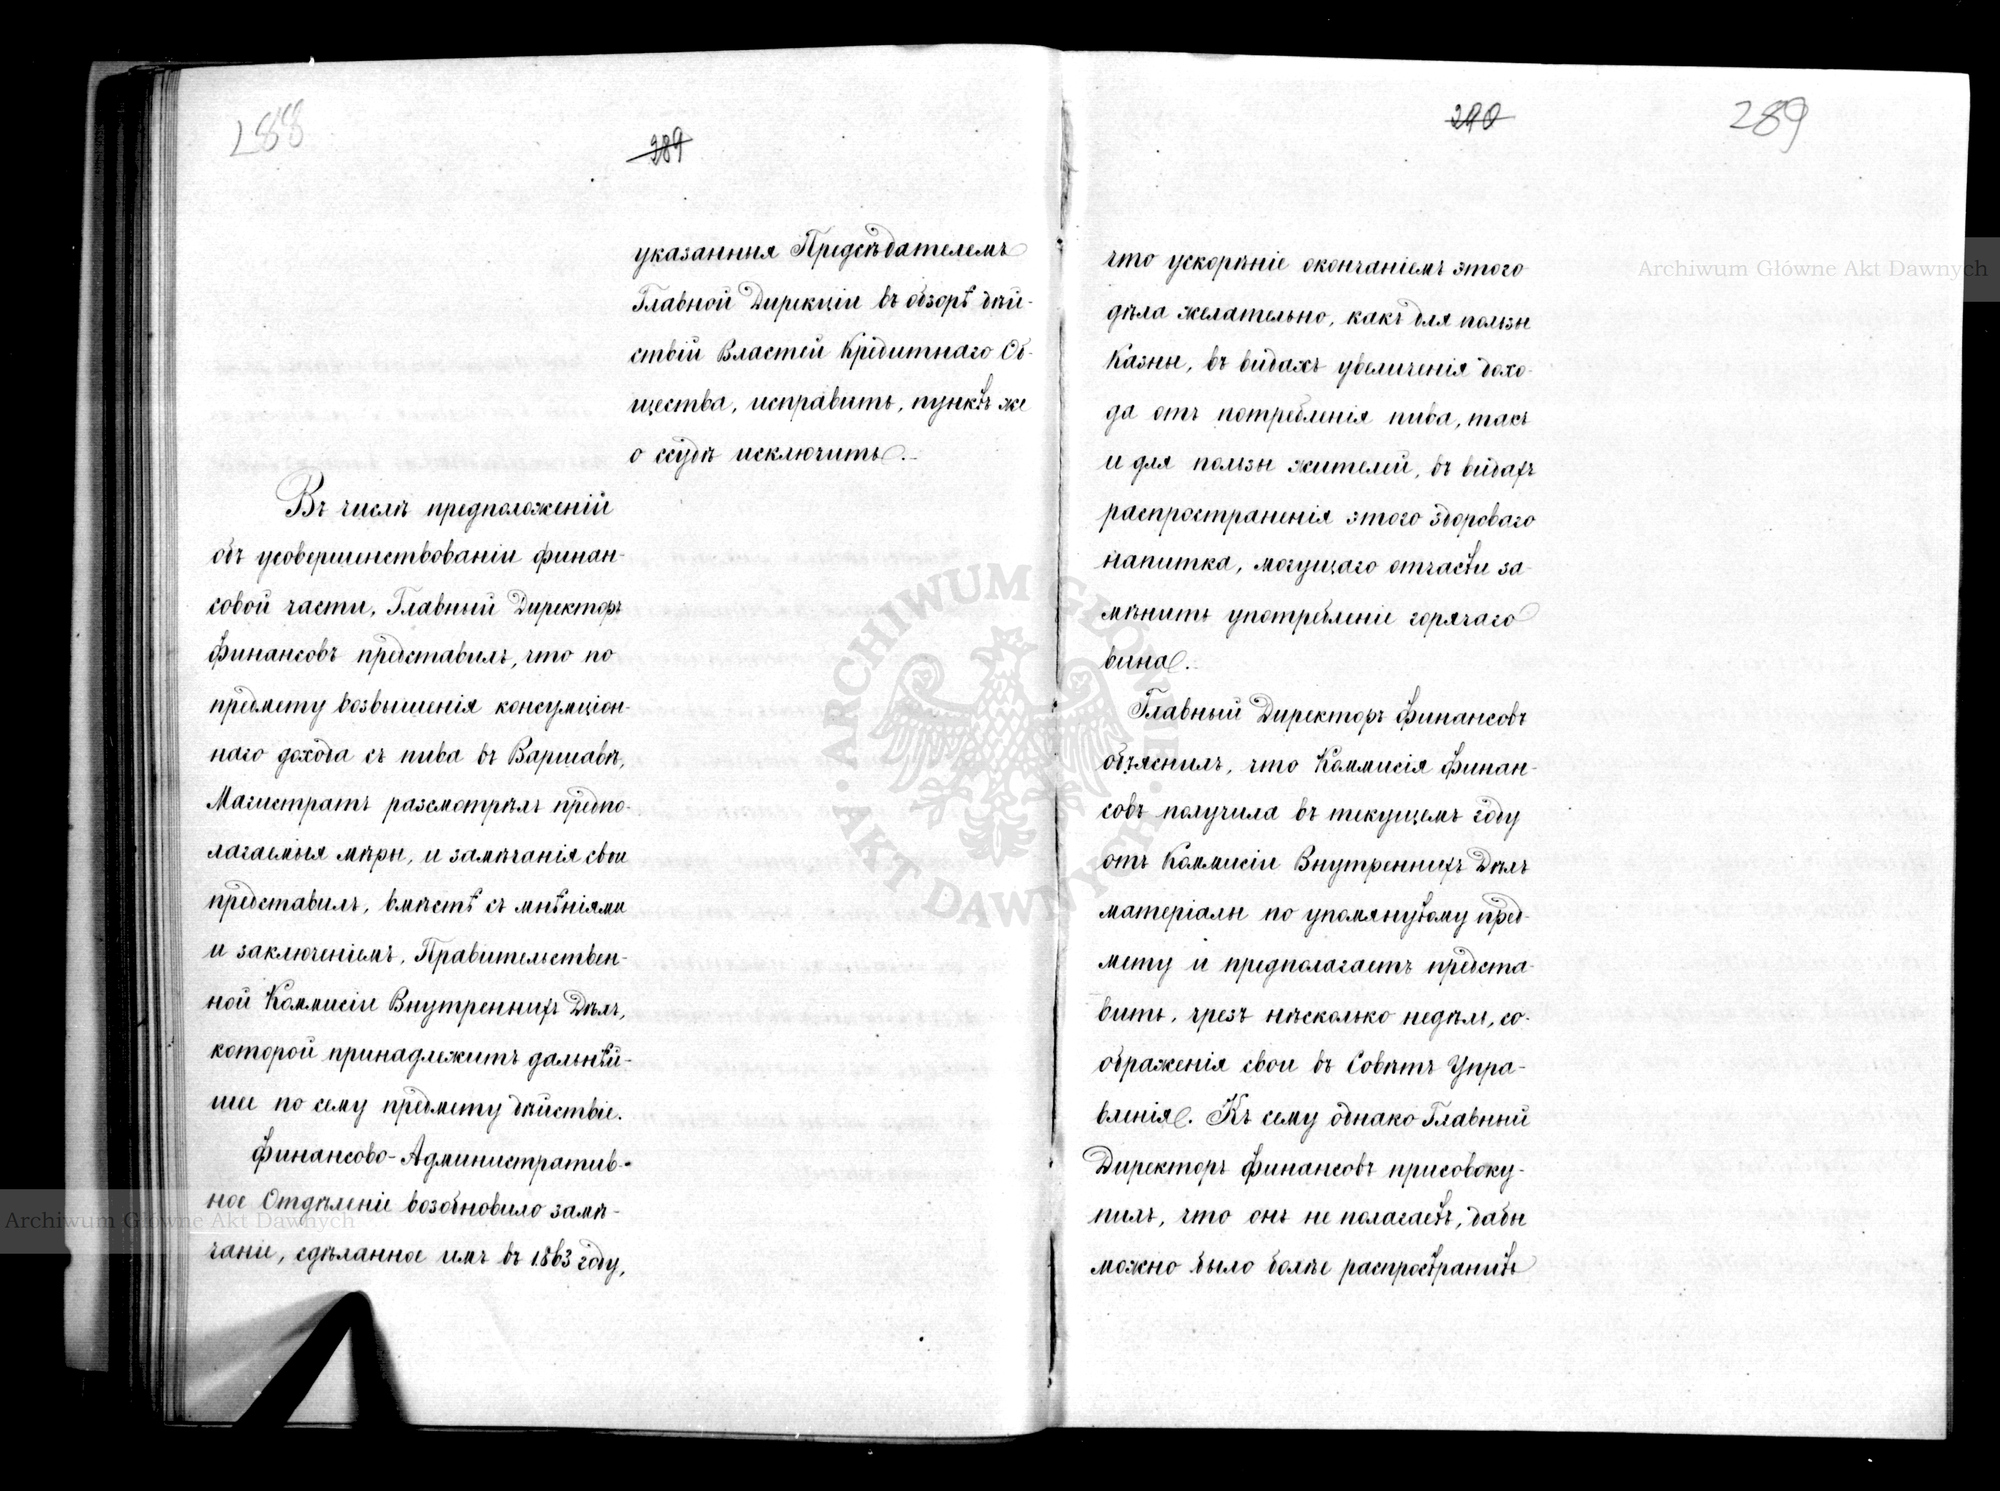 288
289
указанныя Предсѣдателемъ
Главной Дирекціи въ обзорѣ дѣй-
ствій Властей Кредитнаго Об-
щества, исправить, пунктъ же
о ссудѣ исключить.
Въ числѣ предположеній
объ усовершенствованіи финан-
совой части, Главный Директоръ
Финансовъ представилъ, что по
предмету возвышенія консумціон-
наго дохода съ пива въ Варшавѣ,
Магистратъ разсмотрѣлъ предпо-
лагаемыя мѣры, и замѣчанія свои
представилъ, вмѣстѣ съ мнѣніями
и заключеніемъ, Правительствен-
ной Коммисіи Внутреннихъ Дѣлъ,
которой принадлежитъ дальнѣй-
шее по сему предмету дѣйствіе.
Финансово-Административ-
ное Отдѣленіе возобновило замѣ-
чаніе, сдѣланное имъ въ 1863 году,
290
289
что ускорѣніе окончаніемъ этого
дѣла желательно, какъ для пользы
Казны, въ видахъ увеличенія дохо-
да отъ потребленія пива, такъ
и для пользы жителей, въ видахъ
распространенія этого здороваго
напитка, могущаго отчасти за-
мѣнить употребленіе горячаго
вина.
Главный Директоръ Финансовъ
объяснилъ, что Коммисія Финан-
совъ получила въ текущемъ году
отъ Коммисіи Внутреннихъ Дѣлъ
матеріалы по упомянутому пред-
мету и предполагаетъ предста-
вить, чрезъ нѣсколько недѣль, со-
ображенія свои въ Совѣтъ Упра-
вленія. Къ сему однако Главный
Директоръ Финансовъ присовоку-
пилъ, что онъ не полагаетъ, дабы
можно было болѣе распространить
Archiwum Główne Akt Dawnych
Archiwum Główne Akt Dawnych
ARCHIWUM GŁÓWNE · AKT DAWNYCH ·